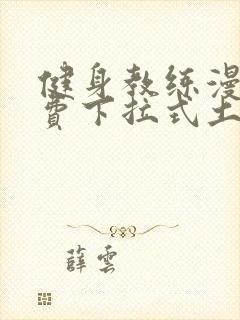 健身教练漫
费下拉式土
薛雲